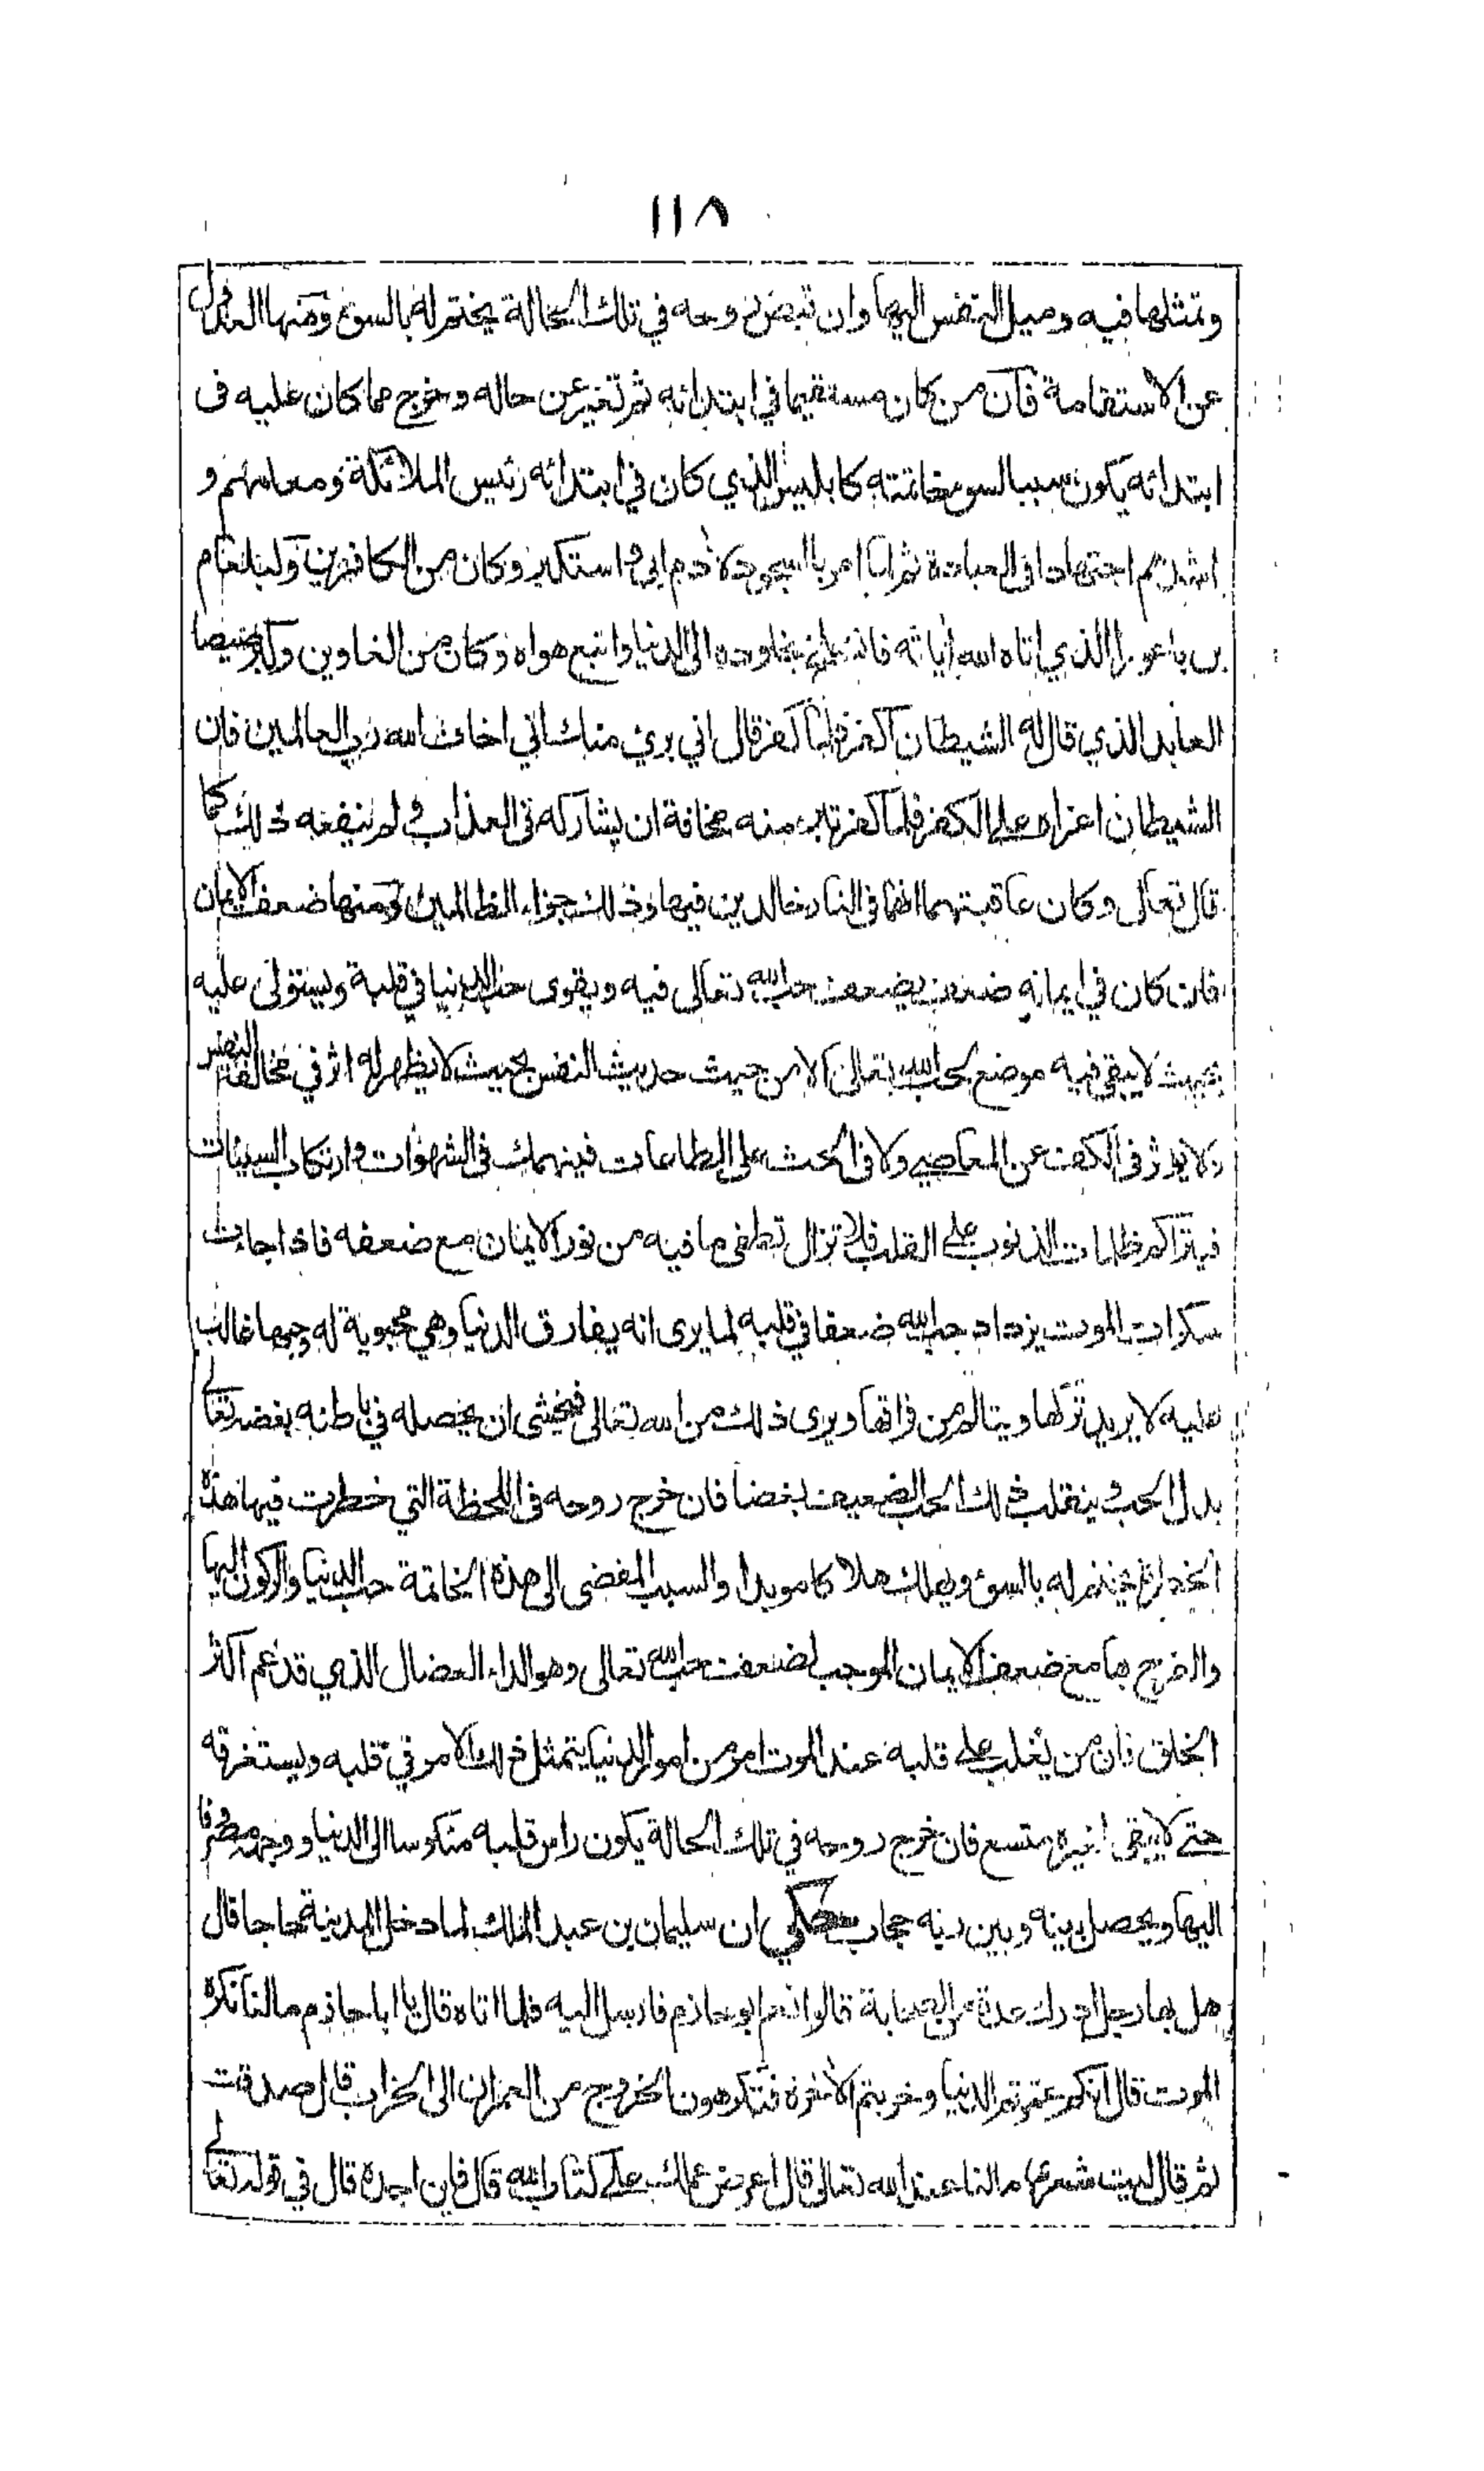 ١١٨
وتمثلها فيه وميل النفس اليها وان قبض روحه في تلك الحالة يختم له بالسوء ومنها العدول
عن الاستقامة فان من كان مستقيما في ابتدائه ثم تغير عن حاله وخرج مما كان عليه في
ابتدائه يكون سببا لسوء خاتمته كابليس الذي كان في ابتدائه رئيس الملائكة ومعلمهم و
اشدهم اجتهادا في العبادة ثم لما امر بالسجود لآدم ابى واستكبر وكان من الكافرين وكبلعام
بن باعورا الذي اتاه الله آياته فانسلخ بخلوده الى الدنيا واتبع هواه وكان من الغاوين وكبرصيصا
العابد الذي قال له الشيطان اكفر فلما كفر قال اني بريء منك اني اخاف الله رب العالمين فان
الشيطان اغراه على الكفر فلما كفر تبرء منه مخافة ان يشاركه في العذاب ولم ينفعه ذلك كما
قال تعالى وكان عاقبتهما انهما في النار خالدين فيها وذلك جزاء الظالمين ومنها ضعف الايمان
فان كان في ايمانه ضعف يضعف حب الله تعالى فيه ويقوى حب الدنيا في قلبه ويستولى عليه
بحيث لا يبقى فيه موضع لحب الله تعالى الا من حيث حديث النفس بحيث لا يظهر له اثر في مخالفة النفس
ولا يؤثر في الكف عن المعاصي ولا في الحث على الطاعات فينهمك في الشهوات وارتكاب السيئات
فيتراكم ظلمات الذنوب على القلب فلا تزال تطفى ما فيه من نور الايمان مع ضعفه فاذا جاءت
سكرات الموت يزداد حب الله ضعفا في قلبه لما يرى انه يفارق الدنيا وهي محبوبة له وحبها غالب
عليه لا يريد تركها ويتالم من فراقها ويرى ذلك من الله تعالى فيخشى ان يحصل في باطنه بغضه تعالى
بدل الحب وينقلب ذلك الحب الضعيف بغضا فان خرج روحه في اللحظة التي خطرت فيها هذه
الخطرة يختم له بالسوء ويهلك هلاكا مويدا والسبب المفضى الى هذه الخاتمة حب الدنيا والركون اليها
والفرح بها مع ضعف الايمان الموجب لضعف حب الله تعالى وهو الداء العضال الذي قد عم اكثر
الخلق فان من يغلب على قلبه عند الموت امر من امور الدنيا يتمثل ذلك الامر في قلبه ويستغرقه
حتى لا يبقى لغيره متسع فان خرج روحه في تلك الحالة يكون راس قلبه منكوسا الى الدنيا ووجهه مصروفا
اليها ويحصل بينه وبين ربه حجاب حكي ان سليمان بن عبد الملك لما دخل المدينة حاجا قال
هل بها رجل ادرك عدة من الصحابة قالوا نعم ابو حازم فارسل اليه فلما اتاه قال يا ابا حازم ما لنا نكره
الموت قال انكم عمرتم الدنيا وخربتم الاخرة فتكرهون الخروج من العمران الى الخراب قال صدقت
ثم قال ليت شعري ما لنا عند الله تعالى قال اعرض عملك على كتاب الله قال فاين اجده قال في قوله تعالى